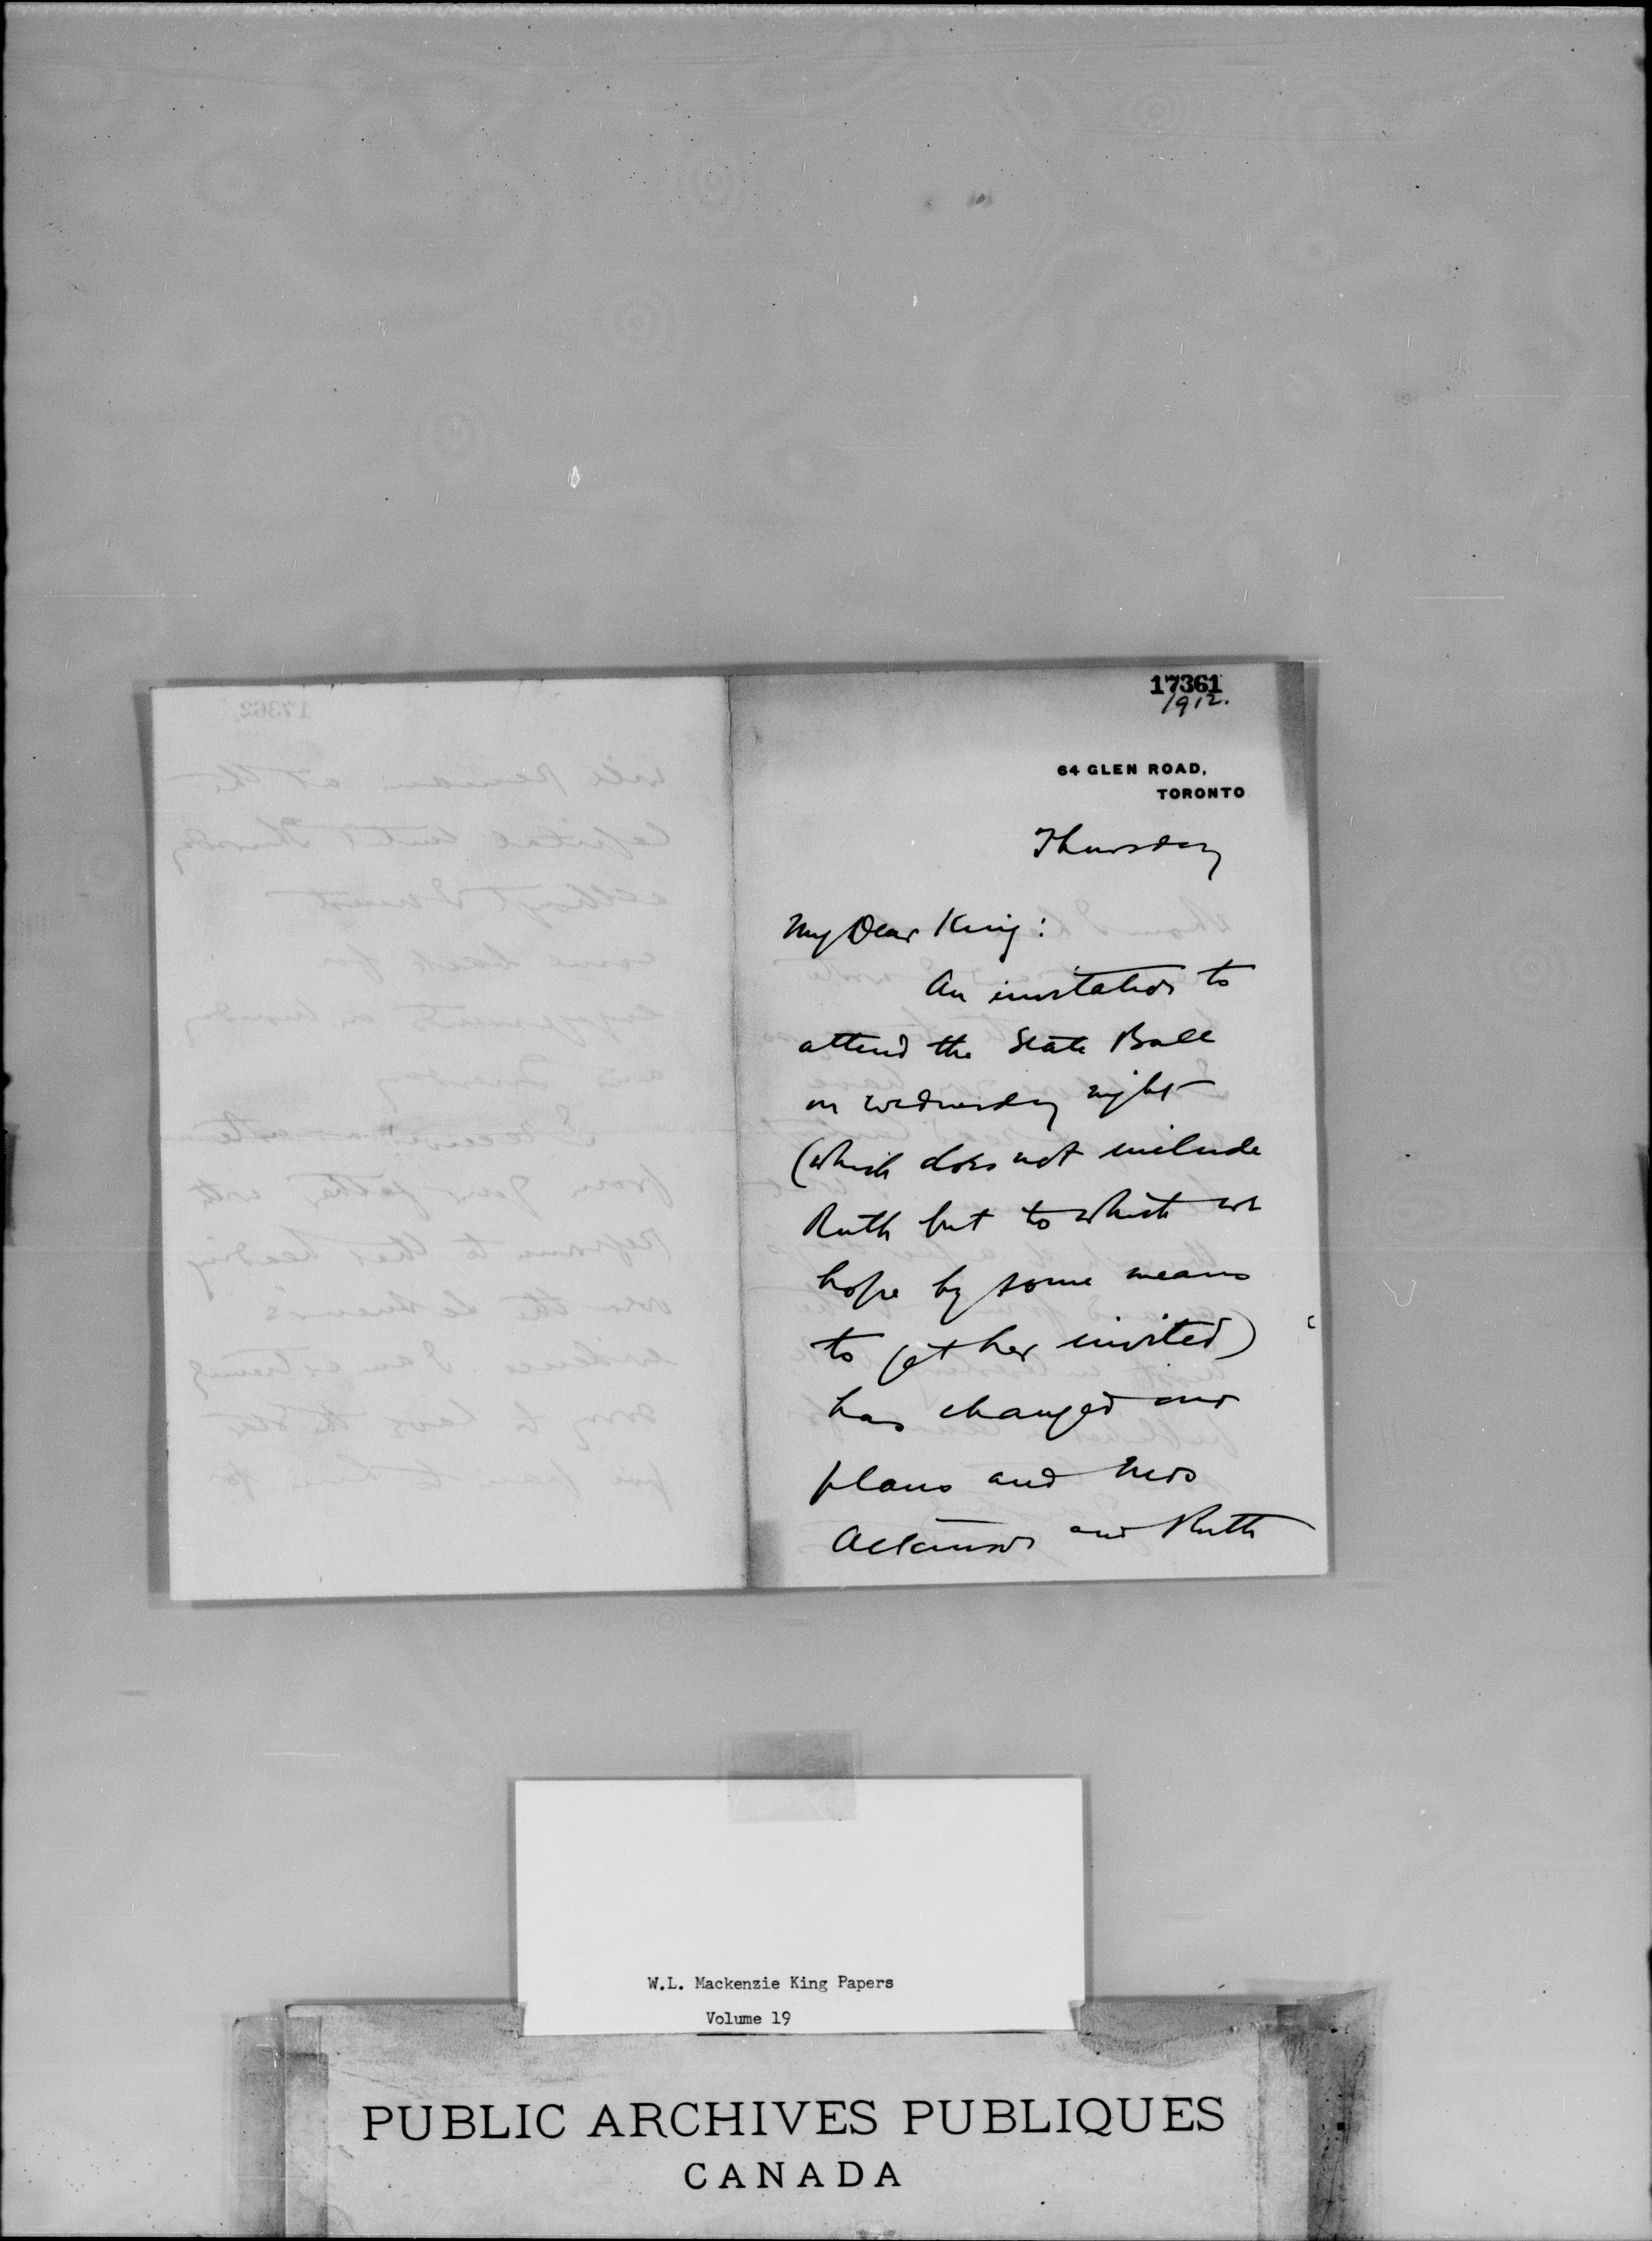 17361
1912.
64 GLEN ROAD,
TORONTO
Thursday
My Dear King:
An invitation to
attend the State Ball
on Wednesday night
(which does not include
Ruth but to which we
hope by some means
to get her invited)
has changed our
plans and Mrs
Atkinson and Ruth
17362
will remain at the
Capital until Thursday
although I must
come back for
engagements on Monday
and Tuesday
I received a note
from your father with
reference to the heading
over the
evidence I am extremely
sorry to have the Star
give pain to him for
W.L. Mackenzie King Papers
Volume 19
PUBLIC ARCHIVES PUBLIQUES
CANADA